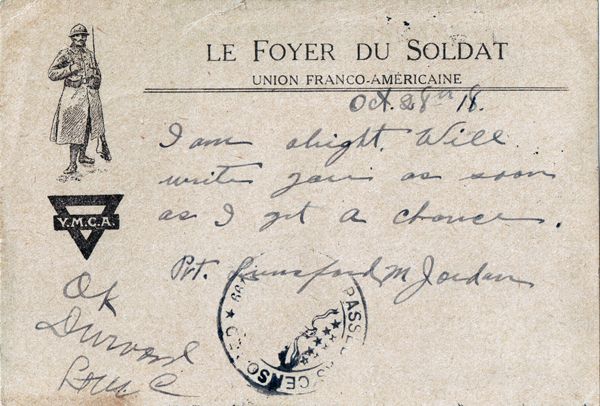 LE FOYER DU SOLDAT
UNION FRANCO-AMÉRICAINE
Oct. 28th 18.
I am alright. Will
write you as soon
as I get a chance.
Pvt. Lunsford M Jordan
Y.M.C.A.
OK
PASSED AS CENSORED